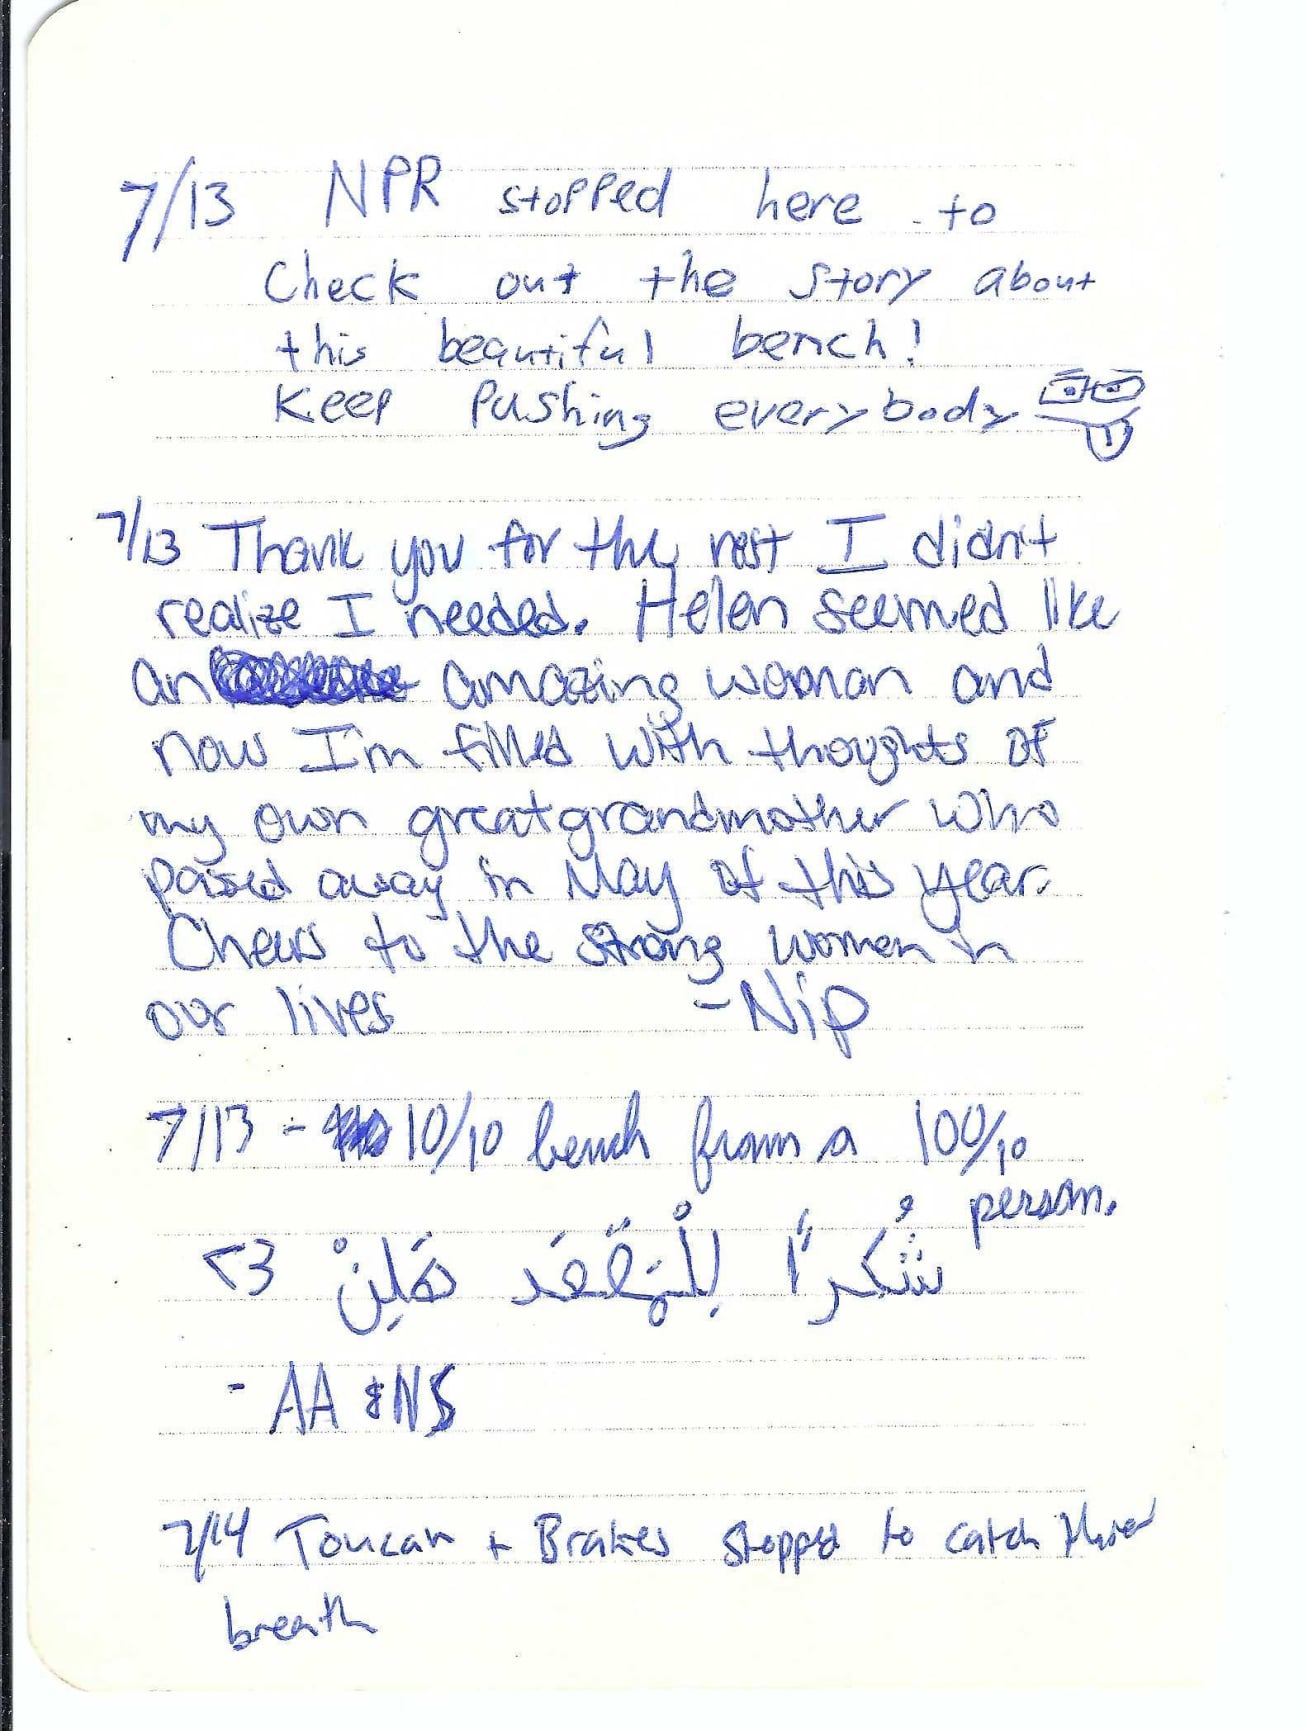 7/13 NPR stopped here to
Check out the story about
this beautiful bench!
Keep Pushing everybody
7/13 Thank you for the rest I didn't
realize I needed. Helen seemed like
an amazing woman and
now I'm filled with thoughts of
my own greatgrandmother who
passed away in May of this year.
Cheers to the strong women in
our lives -Nip
7/13 - 10/10 bench from a 100/10
person.
شُكراً لِلْمَقعَد هَلِنْ <3
- AA & NS
7/14 Toucan + Brakes stopped to catch their
breath